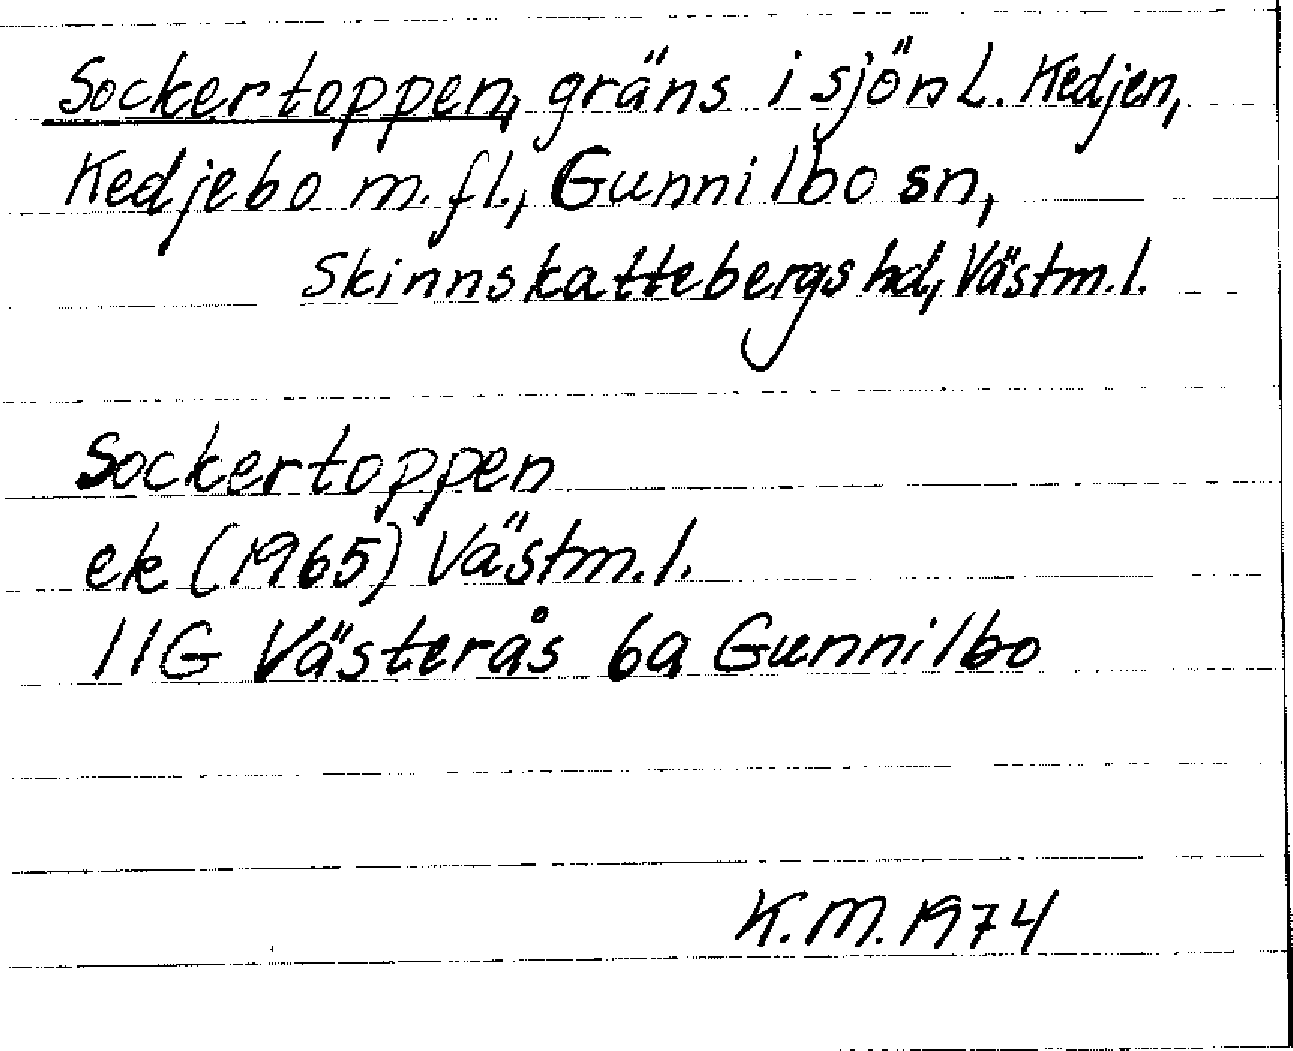 Sockertoppen, gräns i sjön L. Kedjen,
Kedjebo m.fl., Gunnilbo sn,
Skinnskattebergs hd, Västm.l.
Sockertoppen
ek (1965) Västm.l.
11G Västerås 6a Gunnilbo
K.M. 1974